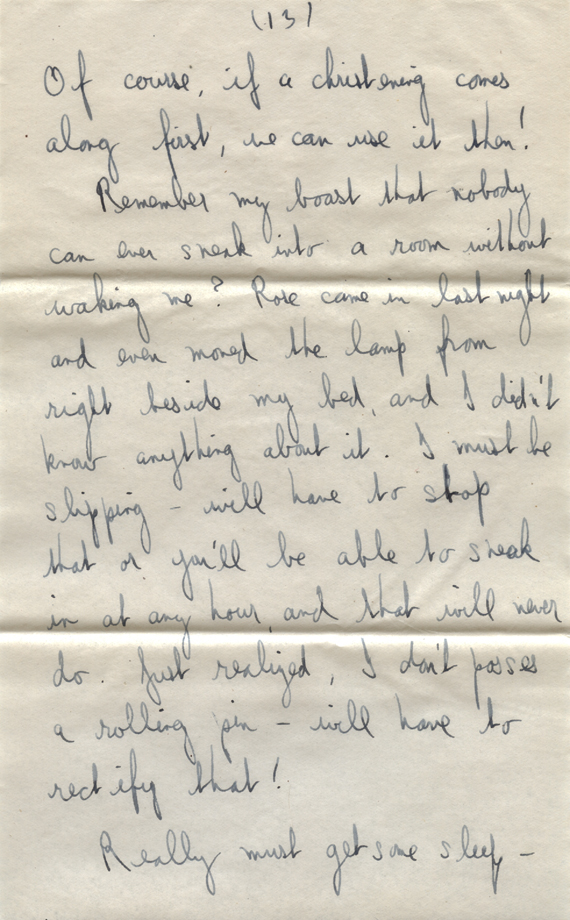 (13)
Of course, if a christening comes
along first, we can use it then!
Remember my boast that nobody
can ever sneak into a room without
waking me? Rose came in last night
and even moved the lamp from
right beside my bed, and I didn't
know anything about it. I must be
slipping - will have to stop
that or you'll be able to sneak
in at any hour, and that will never
do. Just realized, I don't posses
a rolling pin - will have to
rectify that!
Really must get some sleep -